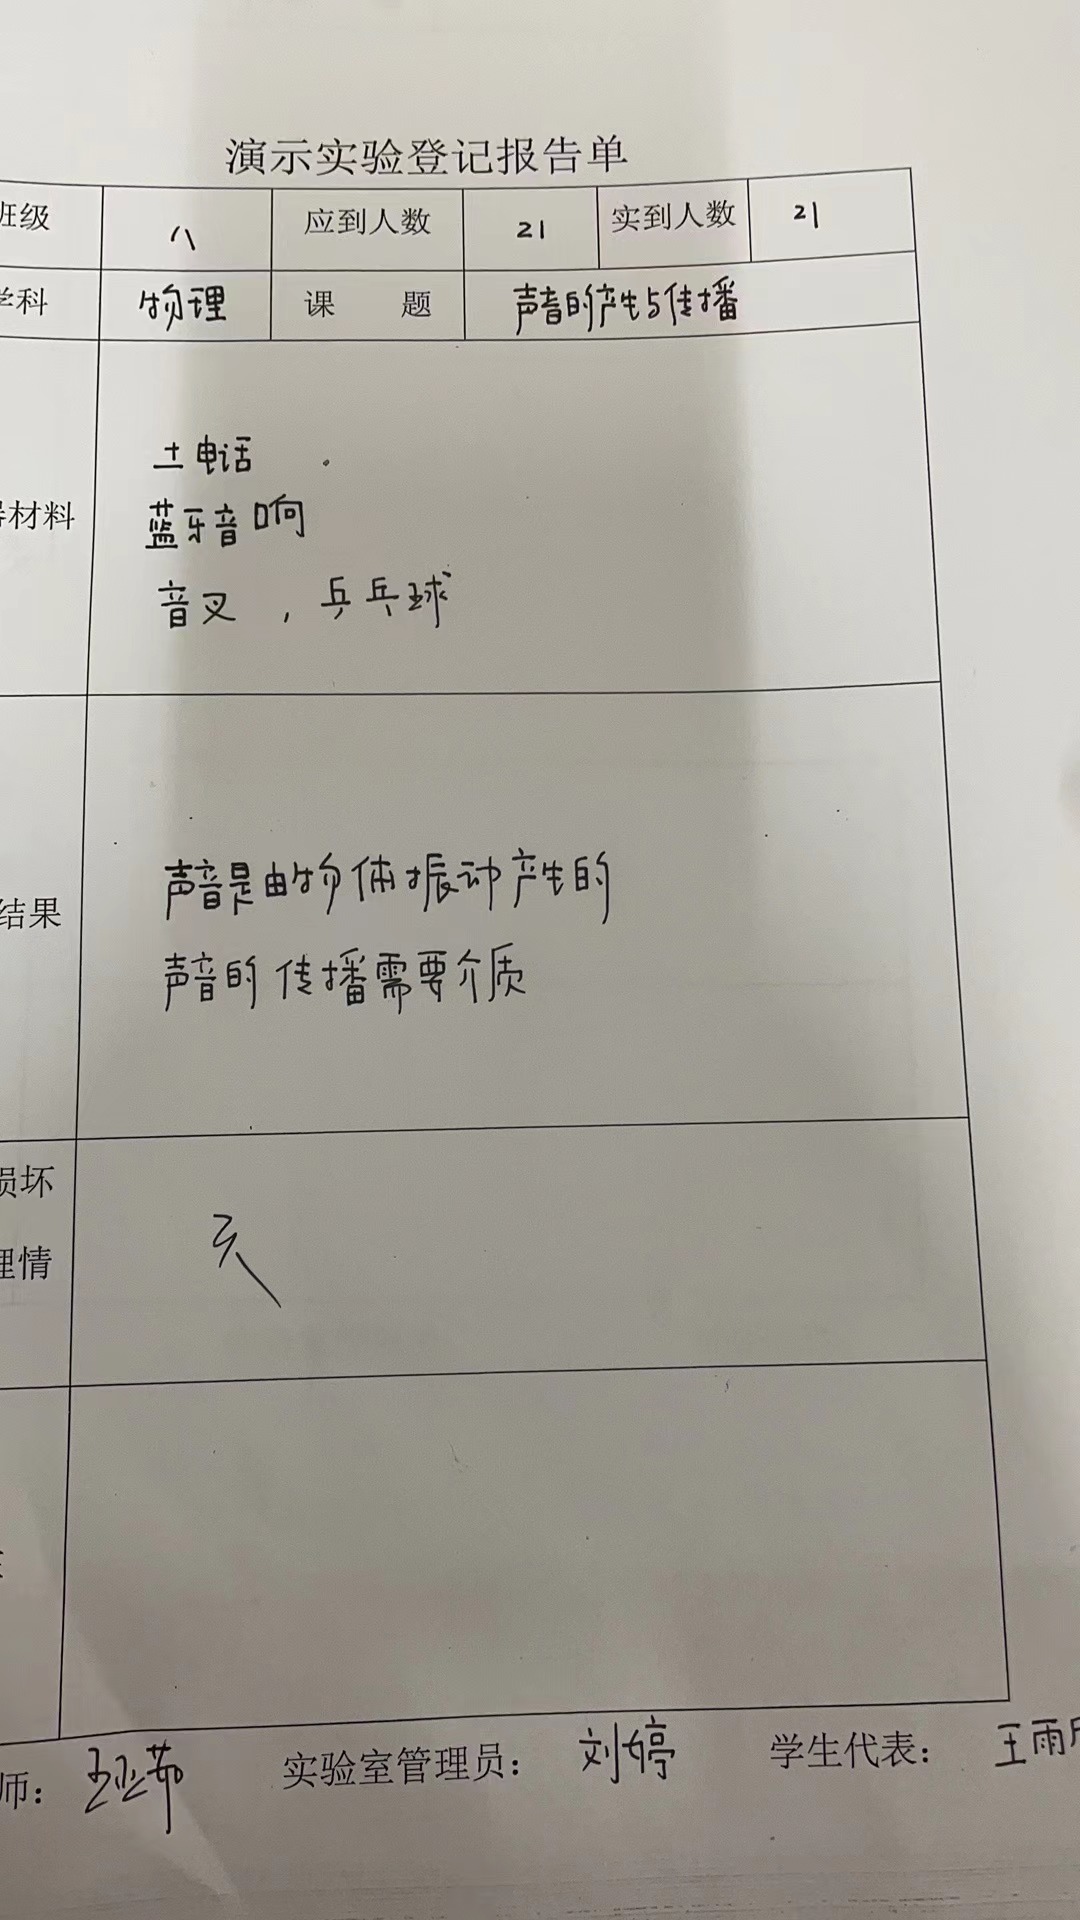 演示实验登记报告单
班级 八 应到人数 21 实到人数 21
学科 物理 课 题 声音的产生与传播
土电话
蓝牙音响
材料
音叉，乒乓球
声音是由物体振动产生的
结果
声音的传播需要介质
损坏
无
理情
师： 王亚茹 实验室管理员： 刘婷 学生代表： 王雨